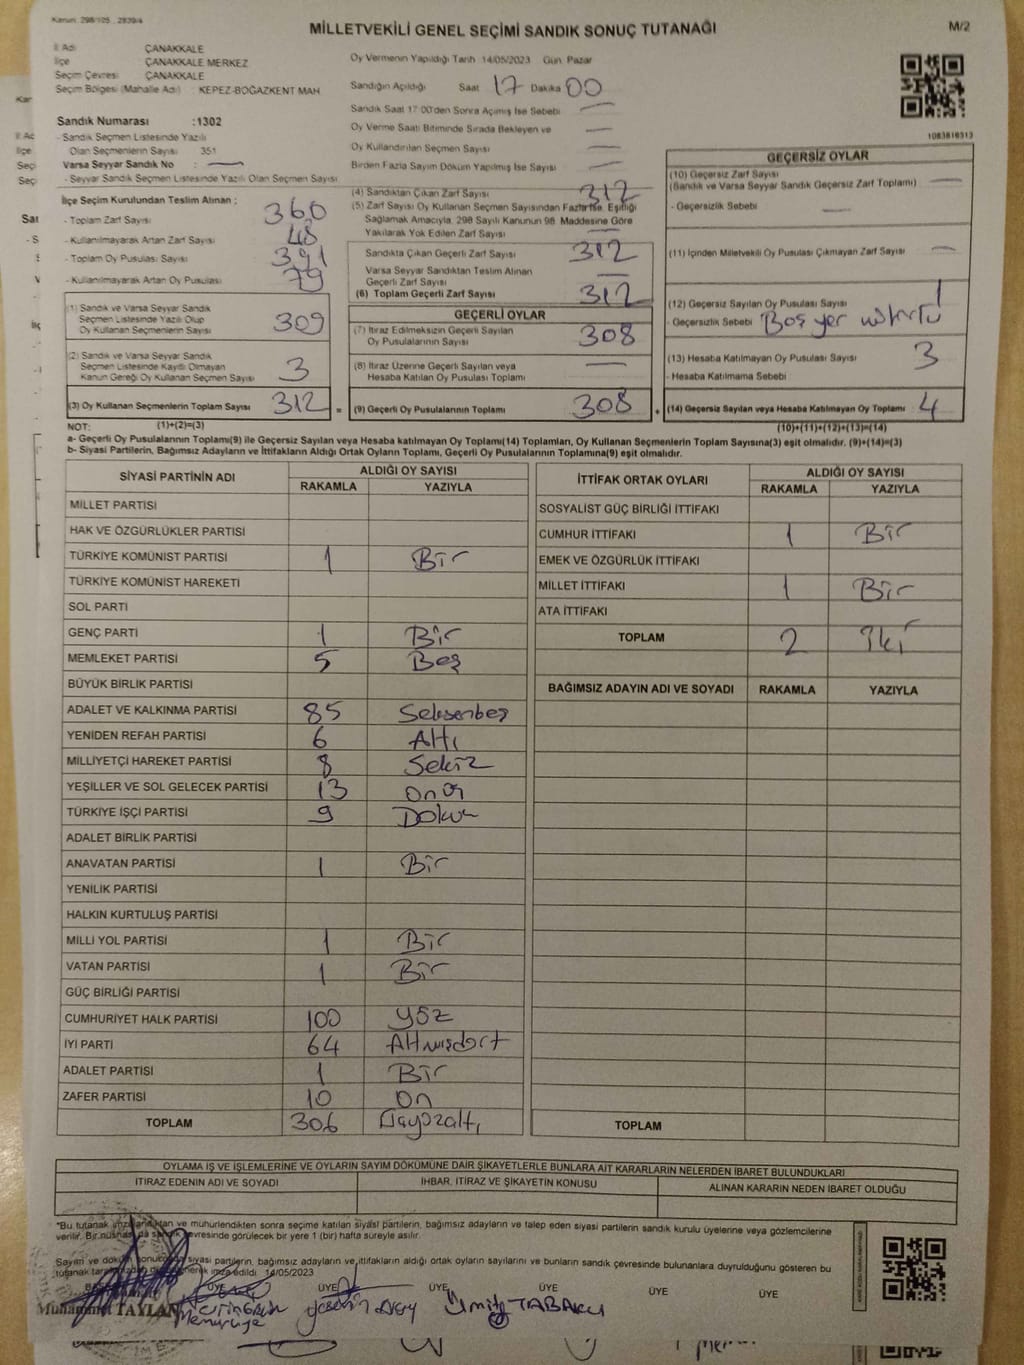 Kanun: 298/105 , 2839/4
MİLLETVEKİLİ GENEL SEÇİMİ SANDIK SONUÇ TUTANAĞI
M/2
İl Adı ÇANAKKALE
İlçe ÇANAKKALE MERKEZ
Seçim Çevresi ÇANAKKALE
Seçim Bölgesi (Mahalle Adı) : KEPEZ-BOĞAZKENT MAH
Sandık Numarası :1302
- Sandık Seçmen Listesinde Yazılı
Olan Seçmenlerin Sayısı 351
Varsa Seyyar Sandık No : —
- Seyyar Sandık Seçmen Listesinde Yazılı Olan Seçmen Sayısı
İlçe Seçim Kurulundan Teslim Alınan ;
- Toplam Zarf Sayısı 360
- Kullanılmayarak Artan Zarf Sayısı 48
- Toplam Oy Pusulası Sayısı 391
- Kullanılmayarak Artan Oy Pusulası 79
(1) Sandık ve Varsa Seyyar Sandık
Seçmen Listesinde Yazılı Olup
Oy Kullanan Seçmenlerin Sayısı 309
(2) Sandık ve Varsa Seyyar Sandık
Seçmen Listesinde Kayıtlı Olmayan
Kanun Gereği Oy Kullanan Seçmen Sayısı 3
(3) Oy Kullanan Seçmenlerin Toplam Sayısı 312 =
(1)+(2)=(3)
Oy Vermenin Yapıldığı Tarih 14/05/2023 Gün: Pazar
Sandığın Açıldığı Saat 17 Dakika 00
Sandık Saat 17:00'den Sonra Açılmış İse Sebebi —
Oy Verme Saati Bitiminde Sırada Bekleyen ve —
Oy Kullandırılan Seçmen Sayısı —
Birden Fazla Sayım Döküm Yapılmış İse Sayısı —
(4) Sandıktan Çıkan Zarf Sayısı 312
(5) Zarf Sayısı Oy Kullanan Seçmen Sayısından Fazla İse, Eşitliği
Sağlamak Amacıyla, 298 Sayılı Kanunun 98. Maddesine Göre
Yakılarak Yok Edilen Zarf Sayısı —
Sandıkta Çıkan Geçerli Zarf Sayısı 312
Varsa Seyyar Sandıktan Teslim Alınan
Geçerli Zarf Sayısı —
(6) Toplam Geçerli Zarf Sayısı 312
GEÇERLİ OYLAR
(7) İtiraz Edilmeksizin Geçerli Sayılan
Oy Pusulalarının Sayısı 308
(8) İtiraz Üzerine Geçerli Sayılan veya
Hesaba Katılan Oy Pusulası Toplamı —
(9) Geçerli Oy Pusulalarının Toplamı 308 +
1083816313
GEÇERSİZ OYLAR
(10) Geçersiz Zarf Sayısı
(Sandık ve Varsa Seyyar Sandık Geçersiz Zarf Toplamı) —
- Geçersizlik Sebebi —
(11) İçinden Milletvekili Oy Pusulası Çıkmayan Zarf Sayısı —
(12) Geçersiz Sayılan Oy Pusulası Sayısı 1
- Geçersizlik Sebebi Boş yer
(13) Hesaba Katılmayan Oy Pusulası Sayısı 3
- Hesaba Katılmama Sebebi
(14) Geçersiz Sayılan veya Hesaba Katılmayan Oy Toplamı 4
(10)+(11)+(12)+(13)=(14)
NOT:
a- Geçerli Oy Pusulalarının Toplamı(9) ile Geçersiz Sayılan veya Hesaba katılmayan Oy Toplamı(14) Toplamları, Oy Kullanan Seçmenlerin Toplam Sayısına(3) eşit olmalıdır. (9)+(14)=(3)
b- Siyasi Partilerin, Bağımsız Adayların ve İttifakların Aldığı Ortak Oyların Toplamı, Geçerli Oy Pusulalarının Toplamına(9) eşit olmalıdır.
SİYASİ PARTİNİN ADI ALDIĞI OY SAYISI
RAKAMLA YAZIYLA
MİLLET PARTİSİ
HAK VE ÖZGÜRLÜKLER PARTİSİ
TÜRKİYE KOMÜNİST PARTİSİ 1 Bir
TÜRKİYE KOMÜNİST HAREKETİ
SOL PARTİ
GENÇ PARTİ 1 Bir
MEMLEKET PARTİSİ 5 Beş
BÜYÜK BİRLİK PARTİSİ
ADALET VE KALKINMA PARTİSİ 85 Seksenbeş
YENİDEN REFAH PARTİSİ 6 Altı
MİLLİYETÇİ HAREKET PARTİSİ 8 Sekiz
YEŞİLLER VE SOL GELECEK PARTİSİ 13 onüç
TÜRKİYE İŞÇİ PARTİSİ 9 Dokuz
ADALET BİRLİK PARTİSİ
ANAVATAN PARTİSİ 1 Bir
YENİLİK PARTİSİ
HALKIN KURTULUŞ PARTİSİ
MİLLİ YOL PARTİSİ 1 Bir
VATAN PARTİSİ 1 Bir
GÜÇ BİRLİĞİ PARTİSİ
CUMHURİYET HALK PARTİSİ 100 yüz
İYİ PARTİ 64 Altmışdört
ADALET PARTİSİ 1 Bir
ZAFER PARTİSİ 10 on
TOPLAM 306 üçyüzaltı
İTTİFAK ORTAK OYLARI ALDIĞI OY SAYISI
RAKAMLA YAZIYLA
SOSYALİST GÜÇ BİRLİĞİ İTTİFAKI
CUMHUR İTTİFAKI 1 Bir
EMEK VE ÖZGÜRLÜK İTTİFAKI
MİLLET İTTİFAKI 1 Bir
ATA İTTİFAKI
TOPLAM 2 iki
BAĞIMSIZ ADAYIN ADI VE SOYADI RAKAMLA YAZIYLA
TOPLAM
OYLAMA İŞ VE İŞLEMLERİNE VE OYLARIN SAYIM DÖKÜMÜNE DAİR ŞİKAYETLERLE BUNLARA AİT KARARLARIN NELERDEN İBARET BULUNDUKLARI
İTİRAZ EDENİN ADI VE SOYADI İHBAR, İTİRAZ VE ŞİKAYETİN KONUSU ALINAN KARARIN NEDEN İBARET OLDUĞU
*Bu tutanak imzalandıktan ve mühürlendikten sonra seçime katılan siyasi partilerin, bağımsız adayların ve talep eden siyasi partilerin sandık kurulu üyelerine veya gözlemcilerine
verilir. Bir nüshası da sandık çevresinde görülecek bir yere 1 (bir) hafta süreyle asılır.
Sayım ve döküm sonucunda siyasi partilerin, bağımsız adayların ve ittifakların aldığı ortak oyların sayılarını ve bunların sandık çevresinde bulunanlara duyrulduğunu gösteren bu
tutanak tarafımızdan düzenlenerek imza edildi. 14/05/2023
ÜYE ÜYE ÜYE ÜYE ÜYE
Muhammet TAYLAN
Ümit TABAKU